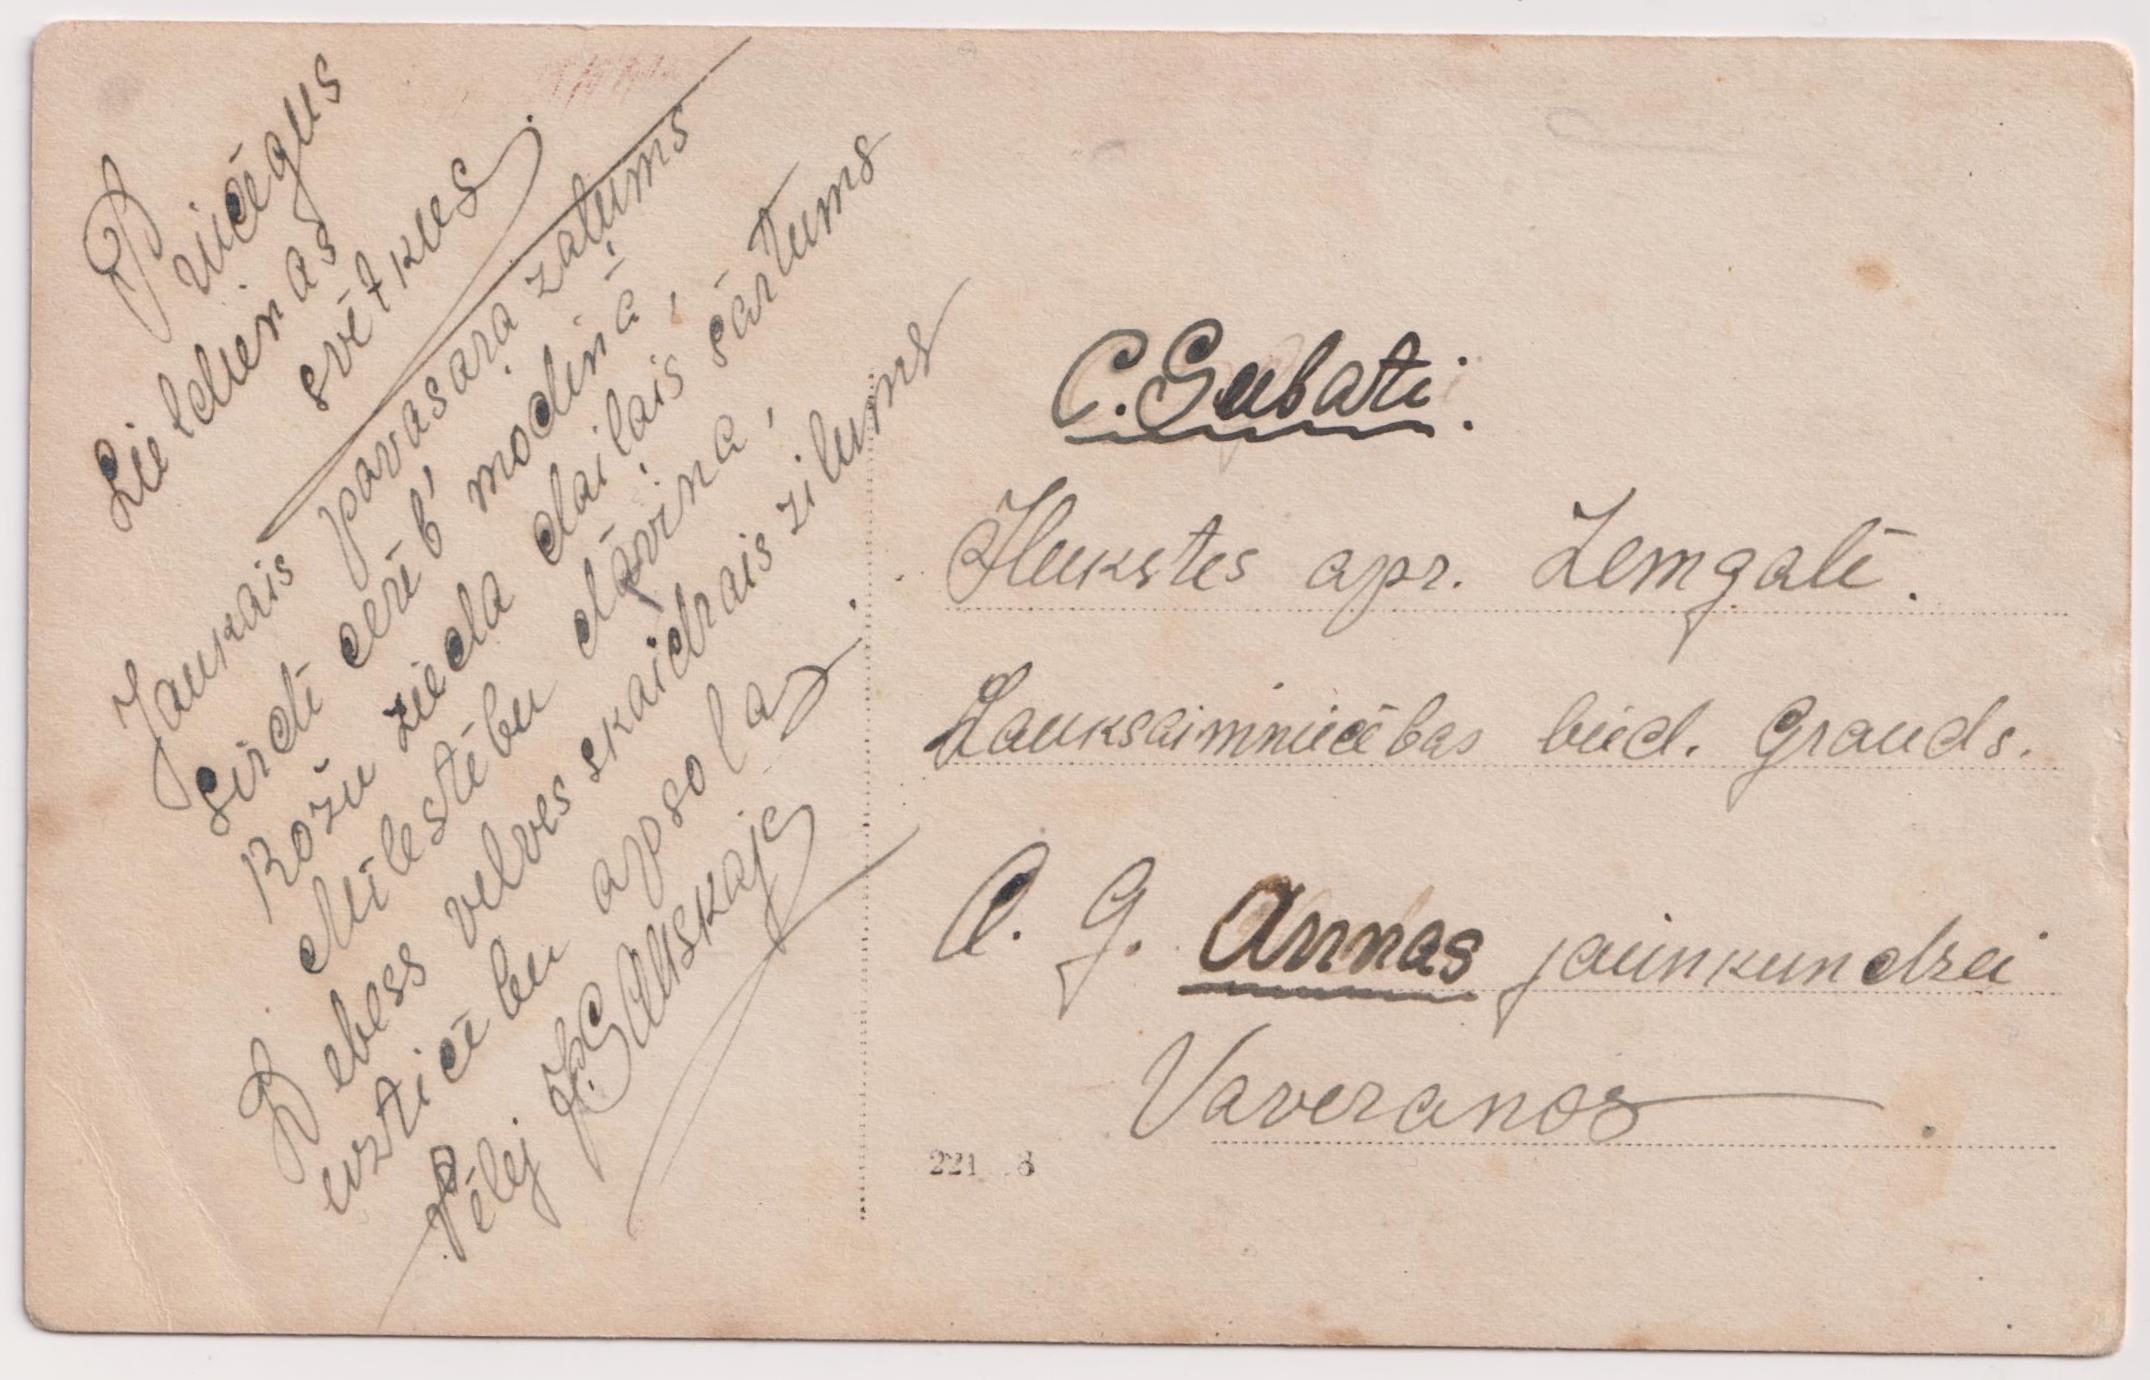 Priecīgus
Lieldienas
svētkus
Jaukais pavasara zaļums
Sirdī cerīb' modinā,
Rožu zieda dailais sārtums
Mīlestību dāvina,
Debess velves skaidrais zilums
uzticību apsola
Vēlej J. Sauskaje
C. Subati.
Ilukstes apr. Zemgalē.
Lauksaimniecības bied. Grauds.
A. G. Annas jaunkundzei
Vaveranos
221 8